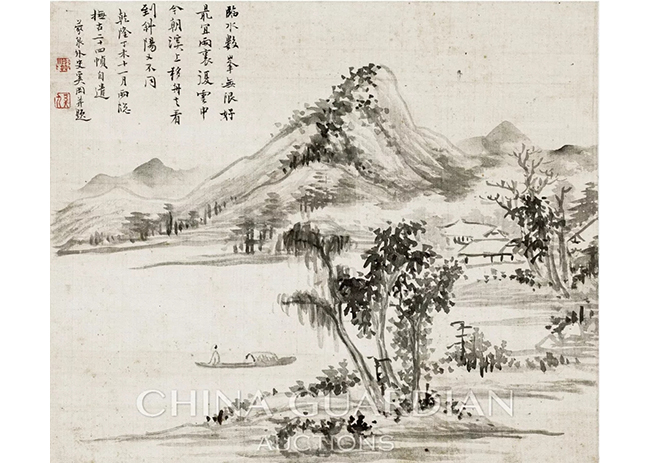 臨水數峯無限好
最宜雨裏復雲中
今朝溪上移舟去看
到斜陽又不同
乾隆丁未十一月雨窓
橅古二十四幀自遣
蒙泉外史奚岡并題
CHINA GUARDIAN
AUCTIONS